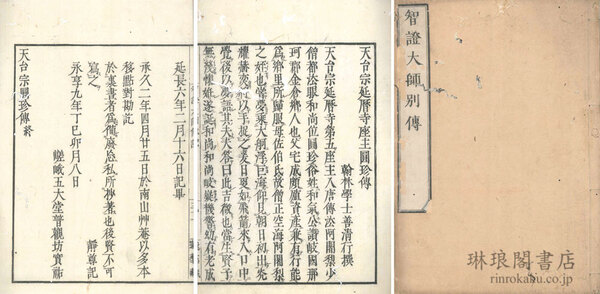 智證大師別傳
天台宗延曆寺座主圓珍傳
翰林學士善清行撰
天台宗延曆寺第五座主入唐傳法阿闍梨少
僧都法眼和尚位圓珍俗姓和氣公讚岐國那
珂郡金倉鄉人也父宅成頗殖資產兼有行能
爲鄉里所歸服母佐伯氏故僧正空海阿闍梨
之姪也嘗夢乘大舸浮巨海仰見朝日初出光
耀赫奕以手捉之爰日更如飛箭來入口中
覺後以夢語其夫夫答曰此吉徵也當生賢子
無幾懷妊遂誕和尚和尚岐嶷機警幼有老成
延長六年二月十六日記畢
承久二年四月廿五日於南山艸菴以多本
移點對勘記
於裏書者爲備廢忘私所抄著也後賢不可
寫之 靜尊記
永享九年丁巳卯月八日
嵯峨五大堂普觀坊實祐
天台宗圓珍傳終
琳琅閣書店
rinrokaku.co.jp